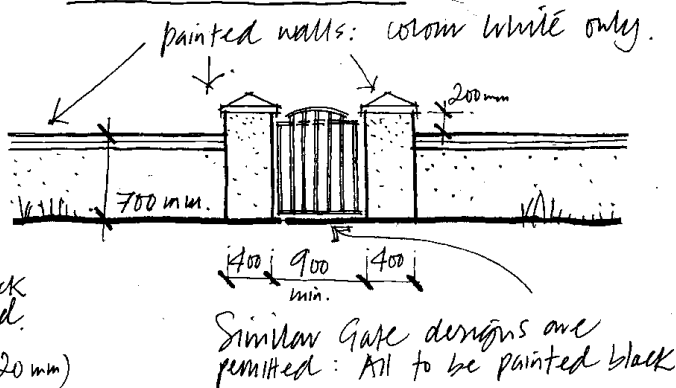 painted walls: colour white only.
200mm
700 mm.
400 900 400
min.
Similar Gate designs are
permitted: All to be painted black
20 mm)